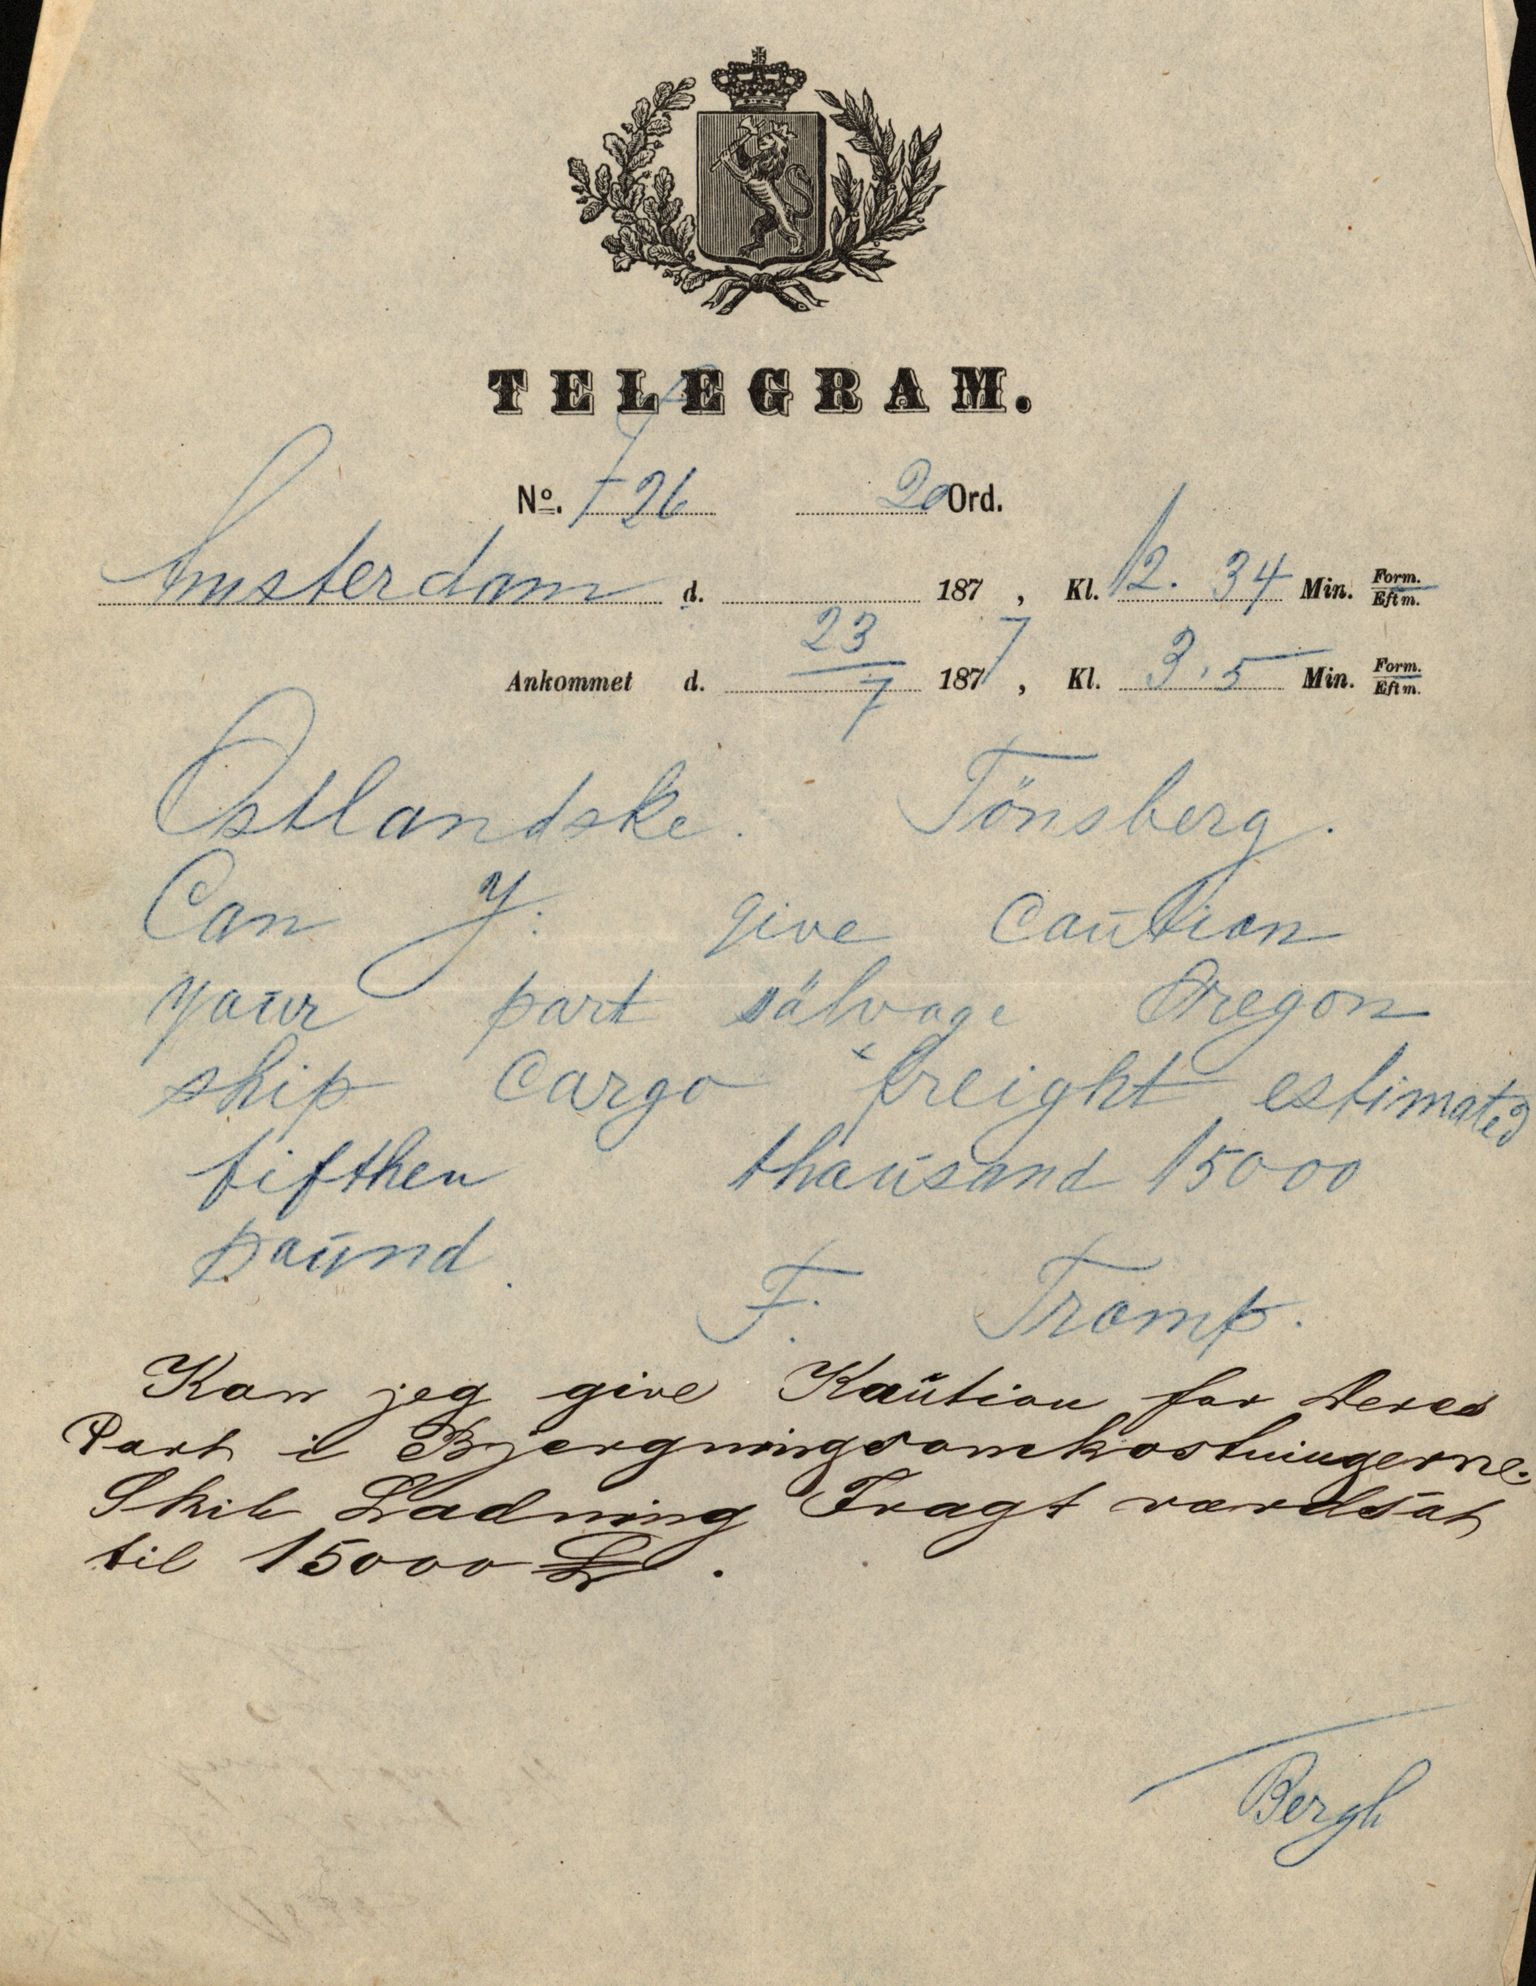 TELEGRAM.
No. 726 20 Ord.
Amsterdam d. 187 , Kl. 12. 34 Min. Form. Eftm.
Ankommet d. 23/7 1877, Kl. 3.5 Min. Form. Eftm.
Østlandske. Tönsberg.
Can J. give caution
your part sälvage Oregon
ship cargo freight estimated
fifthen thousand 15000
pound.
F. Tromp.
Kan jeg give Kaution for Deres
Part i Bjergningsomkostningerne.
Skib Ladning Fragt værdsat
til 15000 £.
Bergh